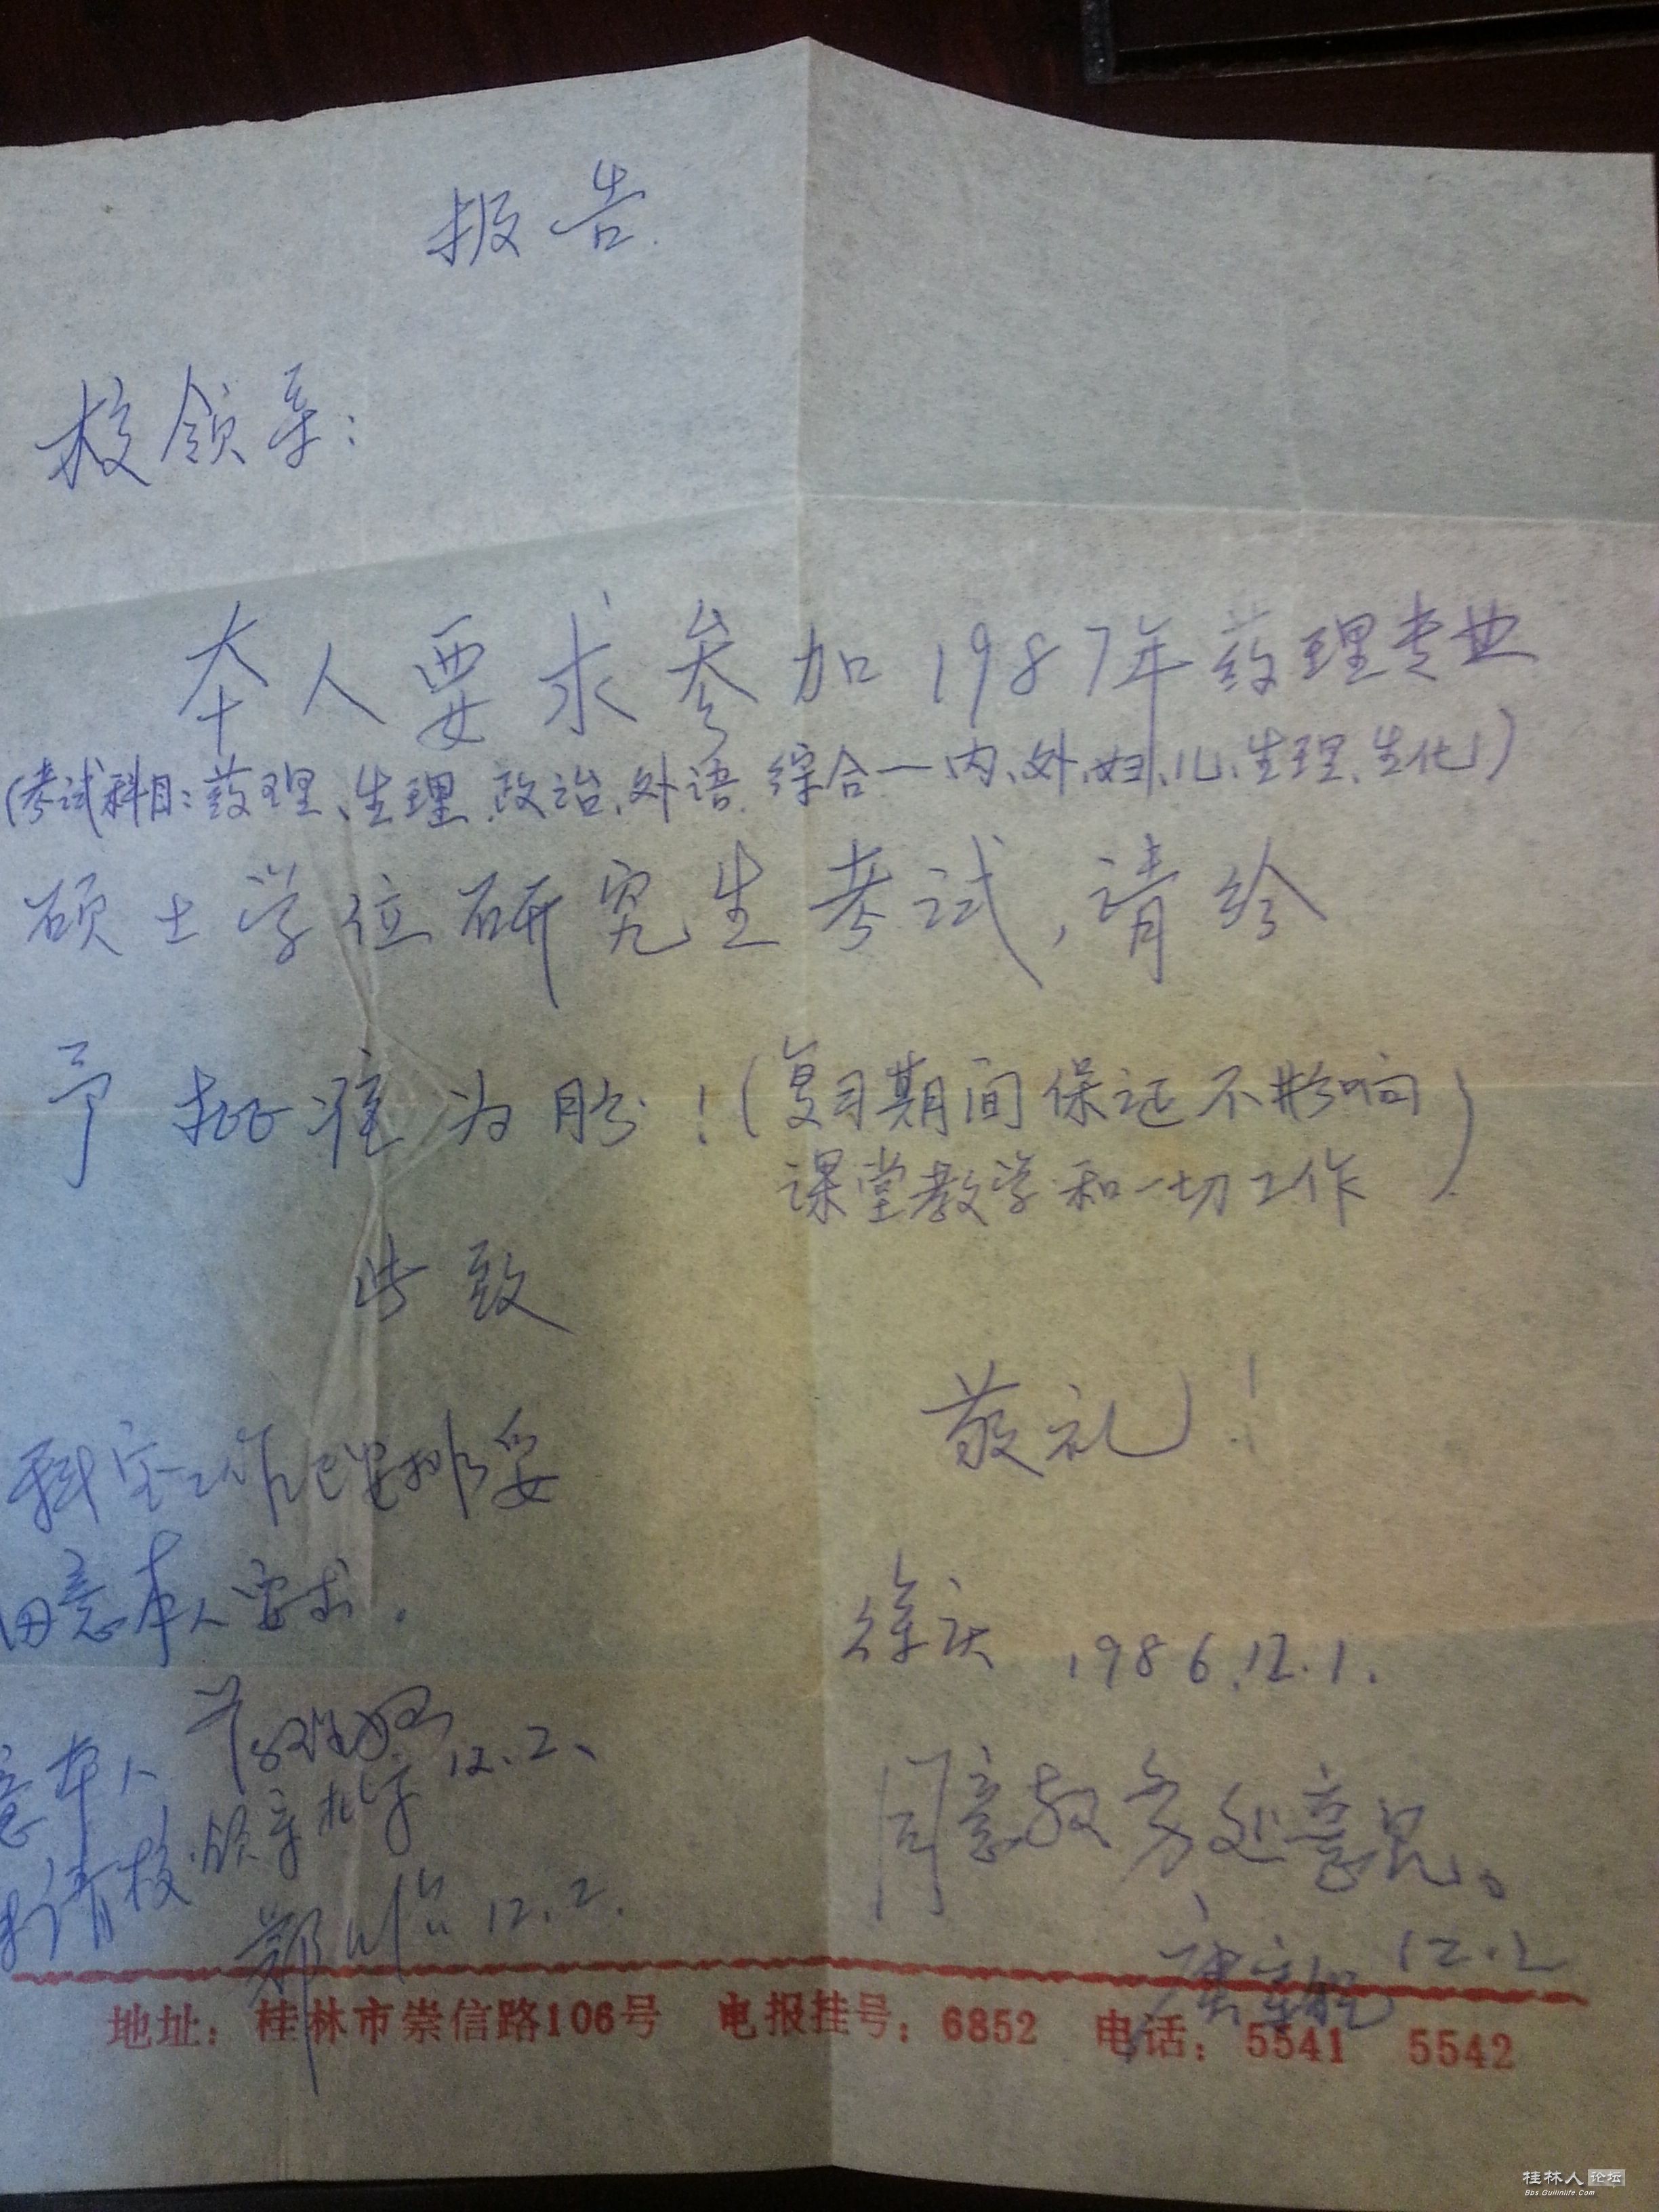 报告
校领导:
本人要求参加1987年药理专业
(考试科目:药理、生理、政治、外语、综合一内、外、妇、儿、生理、生化)
硕士学位研究生考试,请给
予批准为盼!(复习期间保证不影响
课堂教学和一切工作)
此致
敬礼!
科室工作已安排妥
同意本人要求。
徐庆 1986.12.1.
12.2、
意本人
请校领导批准
郑 12.2.
同意教务处意见。
12.2
地址:桂林市崇信路106号 电报挂号:6852 电话:5541 5542
桂林人论坛
Bbs.Guilinlife.Com